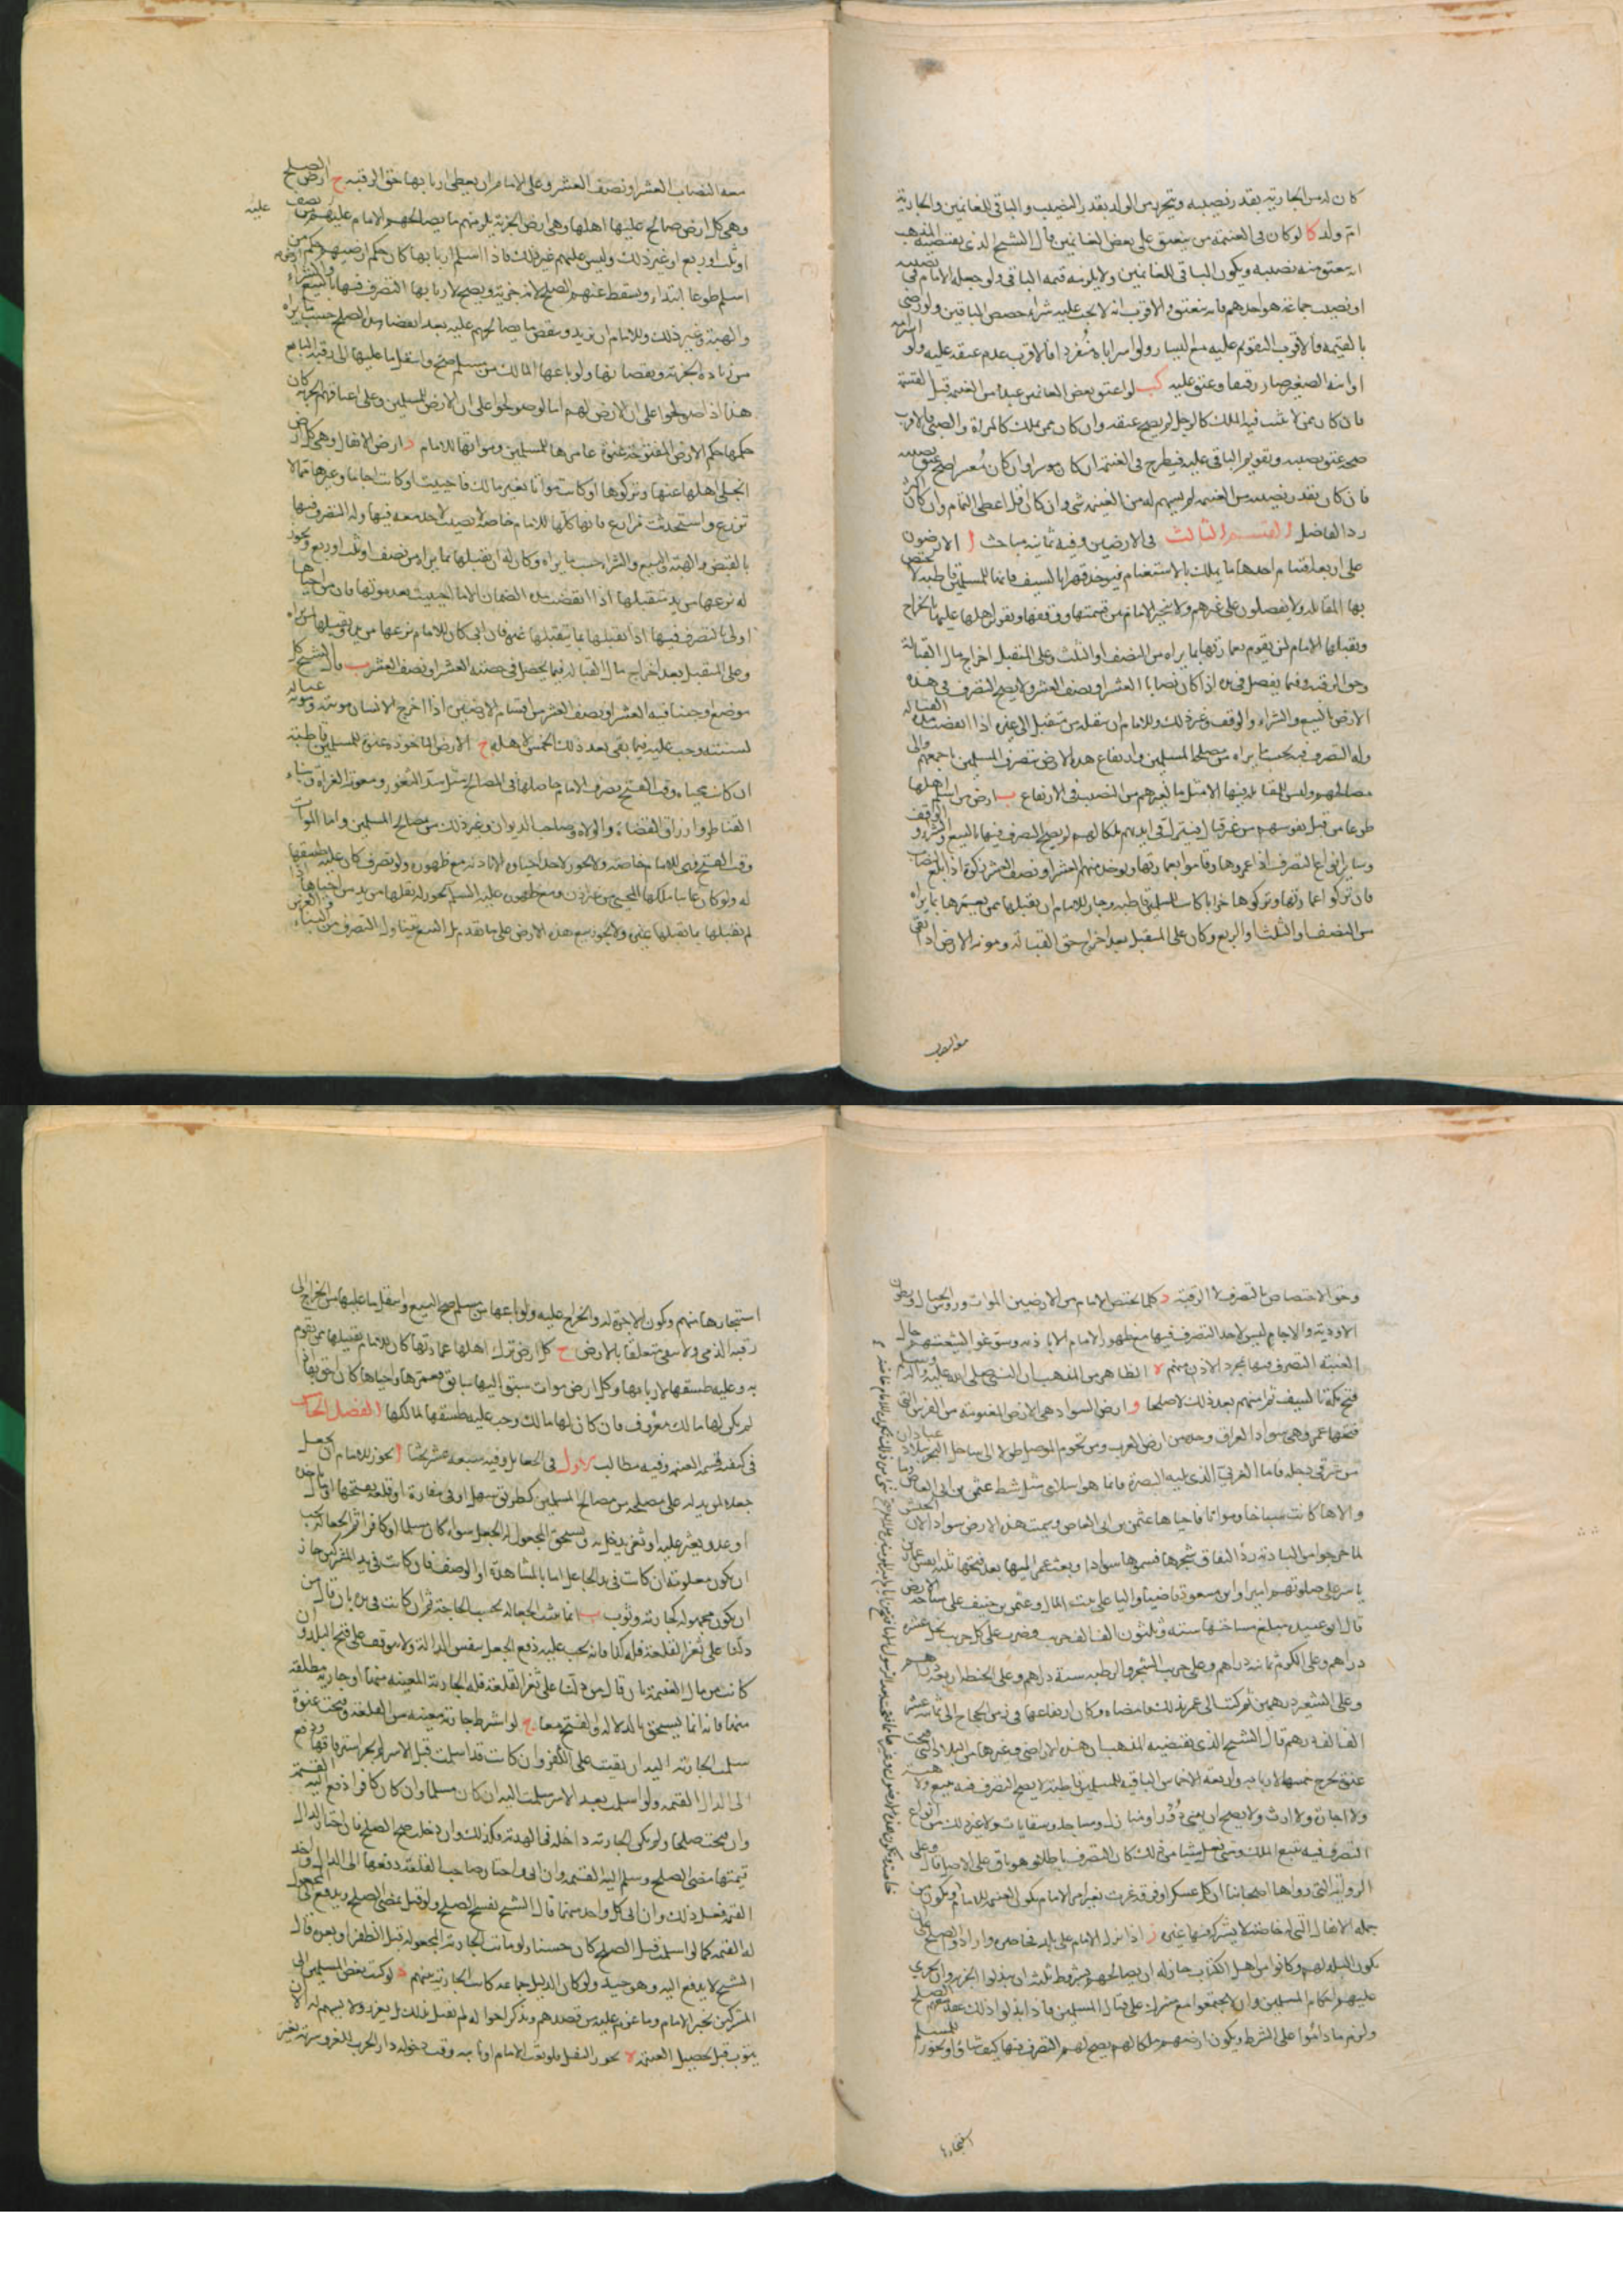 كان له من الجارية بقدر نصيبه ويتحرر من الولد بقدر النصيب والباقي للغانمين والجارية
ام ولد كا لو كان في الغنيمة من ينعتق على بعض الغانمين قال الشيخ الذي يقتضيه المذهب
انه ينعتق منه نصيبه ويكون الباقي للغانمين ولا يلزمه قيمة الباقي ولو جعله الامام في نصيبه
او نصيب جماعة هو احدهم فانه ينعتق والاقرب انه لا يجب عليه شراء حصص الباقين ولو رضي
بالقيمة فالاقرب التقويم عليه مع اليسار ولو اسر اباه منفردا فالاقرب عدم عتقه عليه ولو اسر امه
او ابنه الصغير صار رقيقا وعتق عليه كب لو اعتق بعض الغانمين عبدا من الغنيمة قبل القسمة
فان كان ممن لا يثبت فيه الملك كالرجل لم يصح عتقه وان كان ممن يملك كالمراة والصبي فالاقرب
صحة عتق نصيبه وتقويم الباقي عليه فيطرح في الغنيمة ان كان موسرا وان كان معسرا صح عتق نصيبه
فان كان بقدر نصيبه من الغنيمة لم يسهم له من الغنيمة شي وان كان اقل اعطي التمام وان كان اكثر
رد الفاضل القسم الثالث في الارضين وفيه ثمانية مباحث ا الارضون
على اربعة اقسام احدها ما يملك بالاستغنام فيوخذ قهرا بالسيف فانها للمسلمين قاطبة لا يختص
بها المقاتلة ولا يفضلون على غيرهم ولا يتخير الامام بين قسمتها ووقفها وتقرير اهلها عليها بالخراج
ويقبلها الامام لمن يقوم بعمارتها بما يراه من النصف او الثلث وعلى المتقبل اخراج مال القبالة
وحق الرقبة وفيما يفضل في يده اذا كان نصابا العشر او نصف العشر ولا يصح التصرف في هذه
الارض بالبيع والشراء والوقف وغير ذلك وللامام ان ينقله من متقبل الى غيره اذا انقضت مدة القبالة
وله التصرف فيه بحسب ما يراه من مصلحة المسلمين وارتفاع هذه الارض ينصرف الى المسلمين باجمعهم والى
مصالحهم وليس للمقاتلة فيها الا مثل ما لغيرهم من النصيب في الارتفاع ب ارض من اسلم اهلها
طوعا من قبل نفوسهم من غير قتال فيترك في ايديهم ملكا لهم لم يصح التصرف فيها بالبيع والشراء والوقف
وساير انواع التصرف اذا عمروها وقاموا بعمارتها ويوخذ منهم العشر او نصف العشر زكوة اذا بلغ النصاب
فان تركوا عمارتها وتركوها خرابا كانت للمسلمين قاطبة وجاز للامام ان يقبلها ممن يعمرها بما يراه
من النصف او الثلث او الربع وكان على المتقبل بعد اخراج حق القبالة ومونة الارض اذا بقي
معه النصاب العشر او نصف العشر وعلى الامام ان يعطي اربابها حق الرقبة ج ارض الصلح
وهي كل ارض صالح عليها اهلها وهي ارض الجزية يلزمهم ما يصالحهم الامام عليه من نصف
عليه
او ثلث او ربع او غير ذلك وليس عليهم غير ذلك فاذا اسلم اربابها كان حكم ارضيهم حكم ارض من
اسلم طوعا ابتداء ويسقط عنهم الصلح لانه جزية ويصح لاربابها التصرف فيها بالبيع والشراء
والهبة وغير ذلك وللامام ان يزيد وينقص ما يصالحهم عليه بعد انقضاء مدة الصلح حسب ما يراه
من زيادة الجزية ونقصانها ولو باعها المالك من مسلم صح وانتقل ما عليها الى رقبة البايع
هذا اذا صولحوا على ان الارض لهم اما لو صولحوا على ان الارض للمسلمين وعلى اعناقهم الجزية كان
حكمها حكم الارض المفتوحة عنوة عامرها للمسلمين ومواتها للامام د ارض الانفال وهي كل ارض
انجلى اهلها عنها وتركوها او كانت مواتا لغير مالك فاحييت او كانت اجاما وغيرها مما لا
تزرع واستحدثت مزارع فانها كلها للامام خاصة لا نصيب لاحد معه فيها وله التصرف فيها
بالقبض والهبة والبيع والشراء حسب ما يراه وكان له ان يقبلها بما يراه من نصف او ثلث او ربع ويجوز
له نزعها من يد متقبلها اذا انقضت مدة الضمان الا ما احييت بعد موتها فان من احياها
اولى بالتصرف فيها اذا تقبلها بما يتقبلها غيره فان ابى كان للامام نزعها من يده وتقبيلها لمن يراه
وعلى المتقبل بعد اخراج مال القبالة فيما يحصل في حصته العشر او نصف العشر ب قال الشيخ كل
موضع اوجبنا فيه العشر او نصف العشر من اقسام الارضين اذا اخرج الانسان مونته ومونة عياله
لسنته وجب عليه فيما بقي بعد ذلك الخمس لاهله ج الارض الماخوذة عنوة للمسلمين قاطبة
ان كانت محياة وقت الفتح يصرف الامام حاصلها في المصالح مثل سد الثغور ومعونة الغزاة وبناء
القناطر وارزاق القضاة والولاة وصاحب الديوان وغير ذلك من مصالح المسلمين واما الموات
وقت الفتح فهي للامام خاصة ولا يجوز لاحد احياوه الا باذنه مع ظهوره ولو تصرف كان عليه طسقها
له ولو كان غايبا ملكها المحيي من غير اذن ومع ظهوره عليه السلم يجوز له نقلها من يد من احياها اذا
لم يقبلها بما يقبلها غيره ولا يجوز بيع هذه الارض على ما تقدم بل البيع يتناول التصرف من البناء والغرس
وحق الاختصاص بالتصرف لا الرقبة د كلما يختص الامام من الارضين الموات وروس الجبال وبطون
الاودية والاجام ليس لاحد التصرف فيها مع ظهور الامام الا باذنه وسوغوا لشيعتهم حال
الغيبة التصرف فيها بمجرد الاذن منهم ه الظاهر من المذهب ان النبي صلى الله عليه واله وسلم
فتح مكة بالسيف ثم امنهم بعد ذلك لا صلحا و ارض السواد هي الارض المغنومة من الفرس التي
فتحها عمر وهي سواد العراق وحده من ارض العرب ومن تخوم الموصل طولا الى ساحل البحر ببلاد عبادان
من شرقي دجلة فاما الغربي الذي يليه البصرة فانما هو اسلامي مثل شط عثمن بن ابي العاص وما
والاها كانت سباخا ومواتا فاحياها عثمن بن ابي العاص وسميت هذه الارض سوادا لان الجيش
لما خرجوا من البادية راوا التفاف شجرها فسموها سوادا وبعث عمر اليها بعد فتحها ثلثة انفس عمار بن
ياسر على صلوتهم اميرا وابن مسعود قاضيا وواليا على بيت المال وعثمن بن حنيف على مساحة الارض
قال ابو عبيد مبلغ مساحتها ستة وثلثون الف الف جريب وضرب على كل جريب نخل عشرة
دراهم وعلى الكرم ثمانية دراهم وعلى جريب الشجر والرطبة ستة دراهم وعلى الحنطة اربعة دراهم
وعلى الشعير درهمين ثم كتب الى عمر بذلك فامضاه وكان ارتفاعها في زمن الحجاج الى ثمانية عشر
الف الف درهم قال الشيخ الذي يقتضيه المذهب ان هذه الاراضي وغيرها من البلاد التي فتحت
عنوة يخرج خمسها لاربابه واربعة الاخماس الباقية للمسلمين قاطبة لا يصح التصرف فيه ببيع ولا هبة
ولا اجارة ولا ارث ولا يصح ان يبنى دورا ومنازل ومساجد وسقايات ولا غير ذلك من انواع
التصرف فيه يتبع الملك ومتى فعل شيئا من ذلك كان التصرف باطلا وهو باق على الاصل قال وعلى
الرواية التي رواها اصحابنا ان كل عسكر او فرقة غزت بغير امر الامام تكون الغنيمة للامام ويكون من
جملة الانفال التي له خاصة لا يشركه فيها غيره ز اذا نزل الامام على بلد فحاصره وارادوا الصلح على ان
يكون البلد لهم وكانوا من اهل الكتاب جاز له ان يصالحهم بشروط ثلثة ان يبذلوا الجزية وان يجري
عليهم احكام المسلمين وان لا يجتمعوا مع مشرك على قتال المسلمين فاذا بذلوا ذلك عقد معهم الصلح
ولزم ما داموا على الشرط ويكون ارضهم ملكا لهم يصح لهم التصرف فيها كيف شاؤا ويجوز للمسلم
استجارها
استيجارها منهم وتكون الاجرة له والخراج عليه ولو باعها من مسلم صح البيع وانتقل ما عليها من الخراج الى
رقبة الذمي ولا يبقى متعلقا بالارض ح كل ارض ترك اهلها عمارتها كان للامام تقبيلها ممن يقوم
به وعليه طسقها لاربابها وكل ارض موات سبق اليها سابق فعمرها واحياها كان احق بها اذا
لم يكن لها مالك معروف فان كان لها مالك وجب عليه طسقها لمالكها الفصل الخامس
في كيفية قسمة الغنيمة وفيه مطالب الاول في الجعايل وفيه سبعة عشر بحثا ا يجوز للامام ان يجعل
جعلا لمن يدله على مصلحة من مصالح المسلمين كطريق سهل او ماء في مفازة او قلعة يفتحها او مال ياخذه
او عدو يغير عليه او ثغر يدخل منه ويستحق المجعول له الجعل سواء كان مسلما او كافرا ثم الجعالة يجب
ان يكون معلومة ان كانت في يد الجاعل اما بالمشاهدة او الوصف فان كانت في يد المشركين جاز
ان يكون مجهولة كجارية وثوب ب انما يثبت الجعالة بحسب الحاجة ثم ان كانت في يده بان قال من
دلنا على ثغر القلعة فله كذا فانه يجب عليه دفع الجعل بنفس الدلالة ولا يتوقف على فتح البلد وان
كانت من مال الغنيمة بان قال من دلنا على ثغر القلعة فله الجارية المعينة منها او جارية مطلقة
منها فانه انما يستحق بالدلالة والفتح معا ج لو اشرط جارية معينة من القلعة وفتحت عنوة
سلمت الجارية اليه ان بقيت على الكفر وان كانت قد اسلمت قبل الاسر لم يجز استرقاقها ودفع
الى الدال القيمة ولو اسلمت بعد الاسر سلمت اليه ان كان مسلما وان كان كافرا دفع اليه القيمة
وان فتحت صلحا ولم تكن الجارية داخلة في الهدنة فكذلك وان دخلت صح الصلح فان اختار الدال
قيمتها مضى الصلح وسلم اليه القيمة وان ابى واختار صاحب القلعة دفعها الى الدال واخذ
القيمة فعل ذلك وان ابى كل واحد منهما قال الشيخ يفسخ الصلح ولو قيل يمضي الصلح ويدفع الى المجعول
له القيمة كما لو اسلمت قبل الصلح كان حسنا ولو ماتت الجارية المجعولة قبل الظفر او بعده قال
الشيخ لا يدفع اليه وهو جيد ولو كان الدليل جماعة كانت الجارية بينهم د لو كتب بعض المسلمين الى
المشركين بخبر الامام وما عزم عليه من قصدهم ويذكر احواله لم يقتل بذلك بل يعزر ولا يسهم له الا ان
يتوب قبل تحصيل الغنيمة ه يجوز النفل فلو بعث الامام او نايبه وقت دخوله دار الحرب للغزو سرية تغير